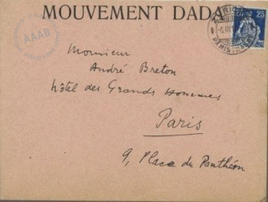 MOUVEMENT DADA
AAAB
25
Monsieur
André Breton
Hôtel des Grands Hommes
Paris
9, Place du Panthéon